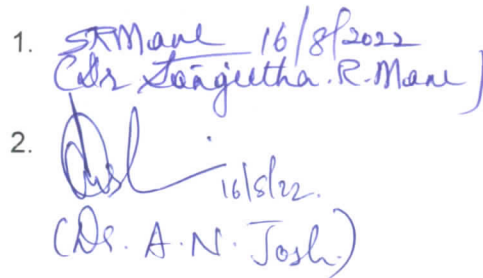 1. SRMane 16/8/2022
(Dr Sangeetha.R.Mane)
2.
16/8/22.
(Dr. A.N. Joshi)